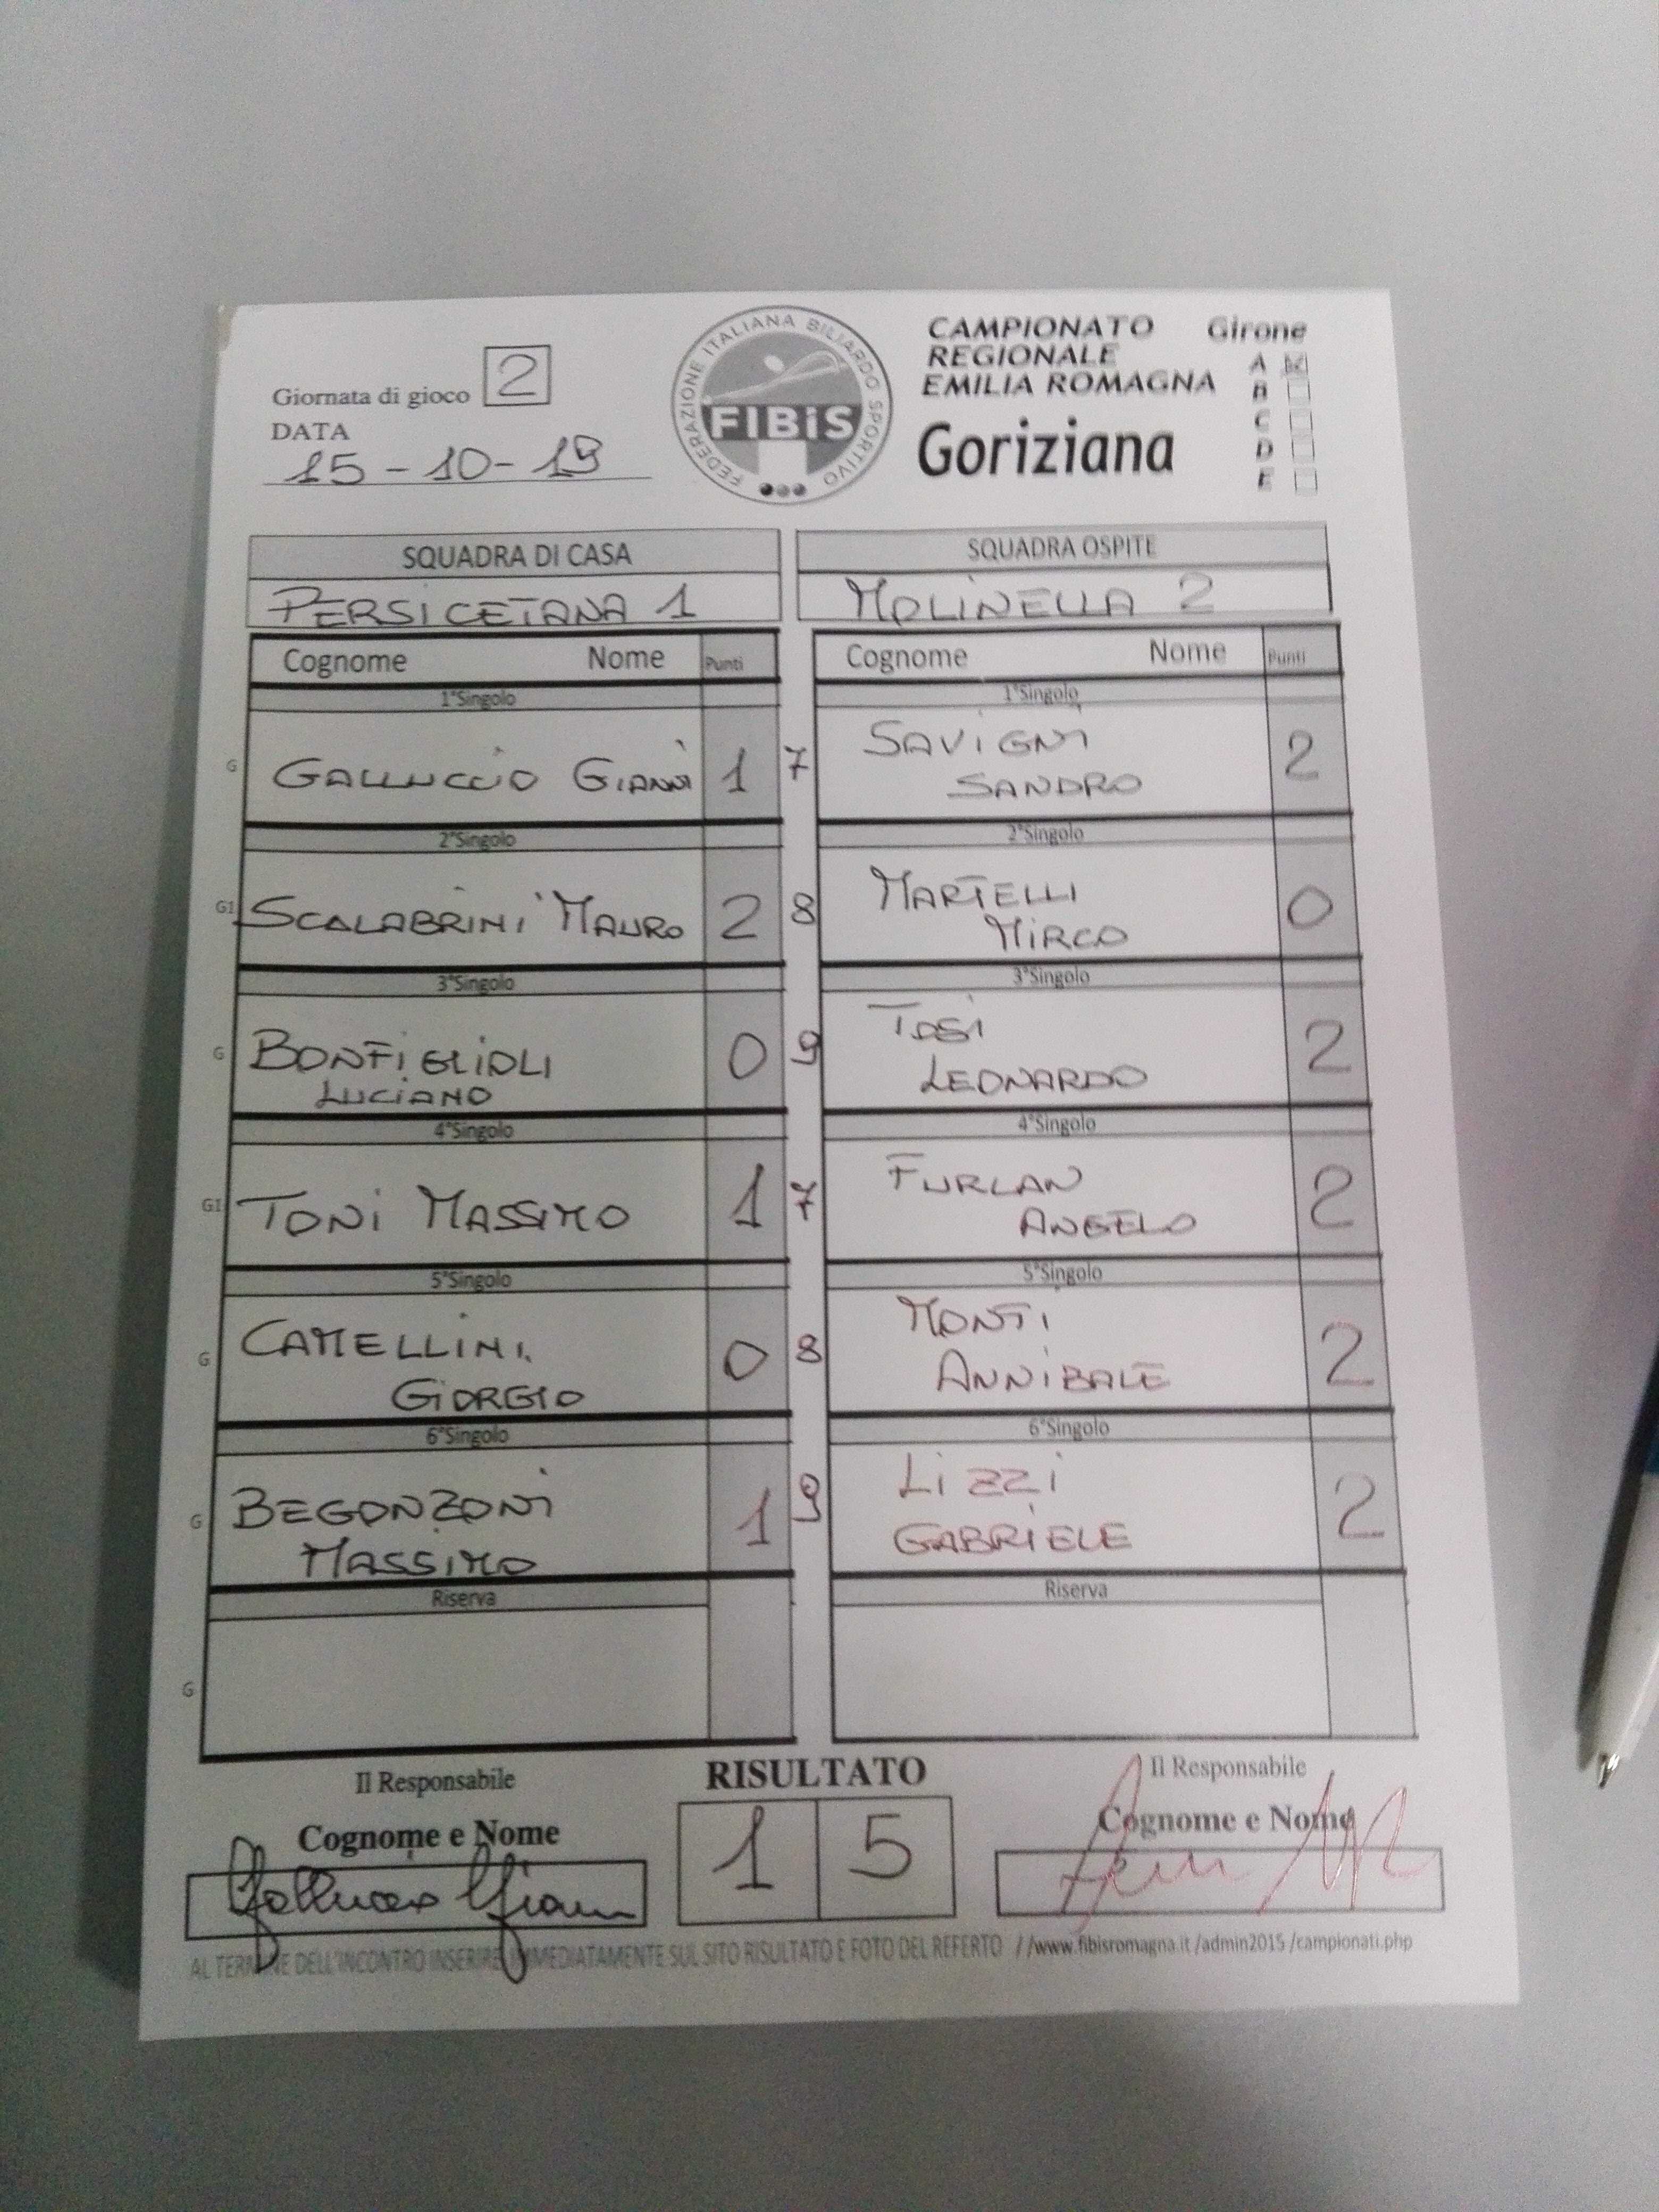 Giornata di gioco 2
DATA
15-10-19
FEDERAZIONE ITALIANA BILIARDO SPORTIVO
FIBiS
CAMPIONATO
REGIONALE
EMILIA ROMAGNA
Goriziana
Girone
A
B
C
D
E
SQUADRA DI CASA SQUADRA OSPITE
PERSICETANA 1 MOLINELLA 2
Cognome Nome Punti Cognome Nome Punti
1°Singolo 1°Singolo
G GALLUCCIO GIANNI 1 7 SAVIGNI 2
SANDRO
2°Singolo 2°Singolo
G1 SCALABRINI MAURO 2 8 MARTELLI 0
MIRCO
3°Singolo 3°Singolo
G BONFIGLIOLI 0 9 TOSI 2
LUCIANO LEONARDO
4°Singolo 4°Singolo
G1 TONI MASSIMO 1 7 FURLAN 2
ANGELO
5°Singolo 5°Singolo
G CAMELLINI 0 8 MONTI 2
GIORGIO ANNIBALE
6°Singolo 6°Singolo
G BEGONZONI 1 9 LIZZI 2
MASSIMO GABRIELE
Riserva Riserva
G
Il Responsabile RISULTATO Il Responsabile
Cognome e Nome 1 5 Cognome e Nome
Galluccio Gianni
AL TERMINE DELL'INCONTRO INSERIRE IMMEDIATAMENTE SUL SITO RISULTATO E FOTO DEL REFERTO //www.fibisromagna.it/admin2015/campionati.php